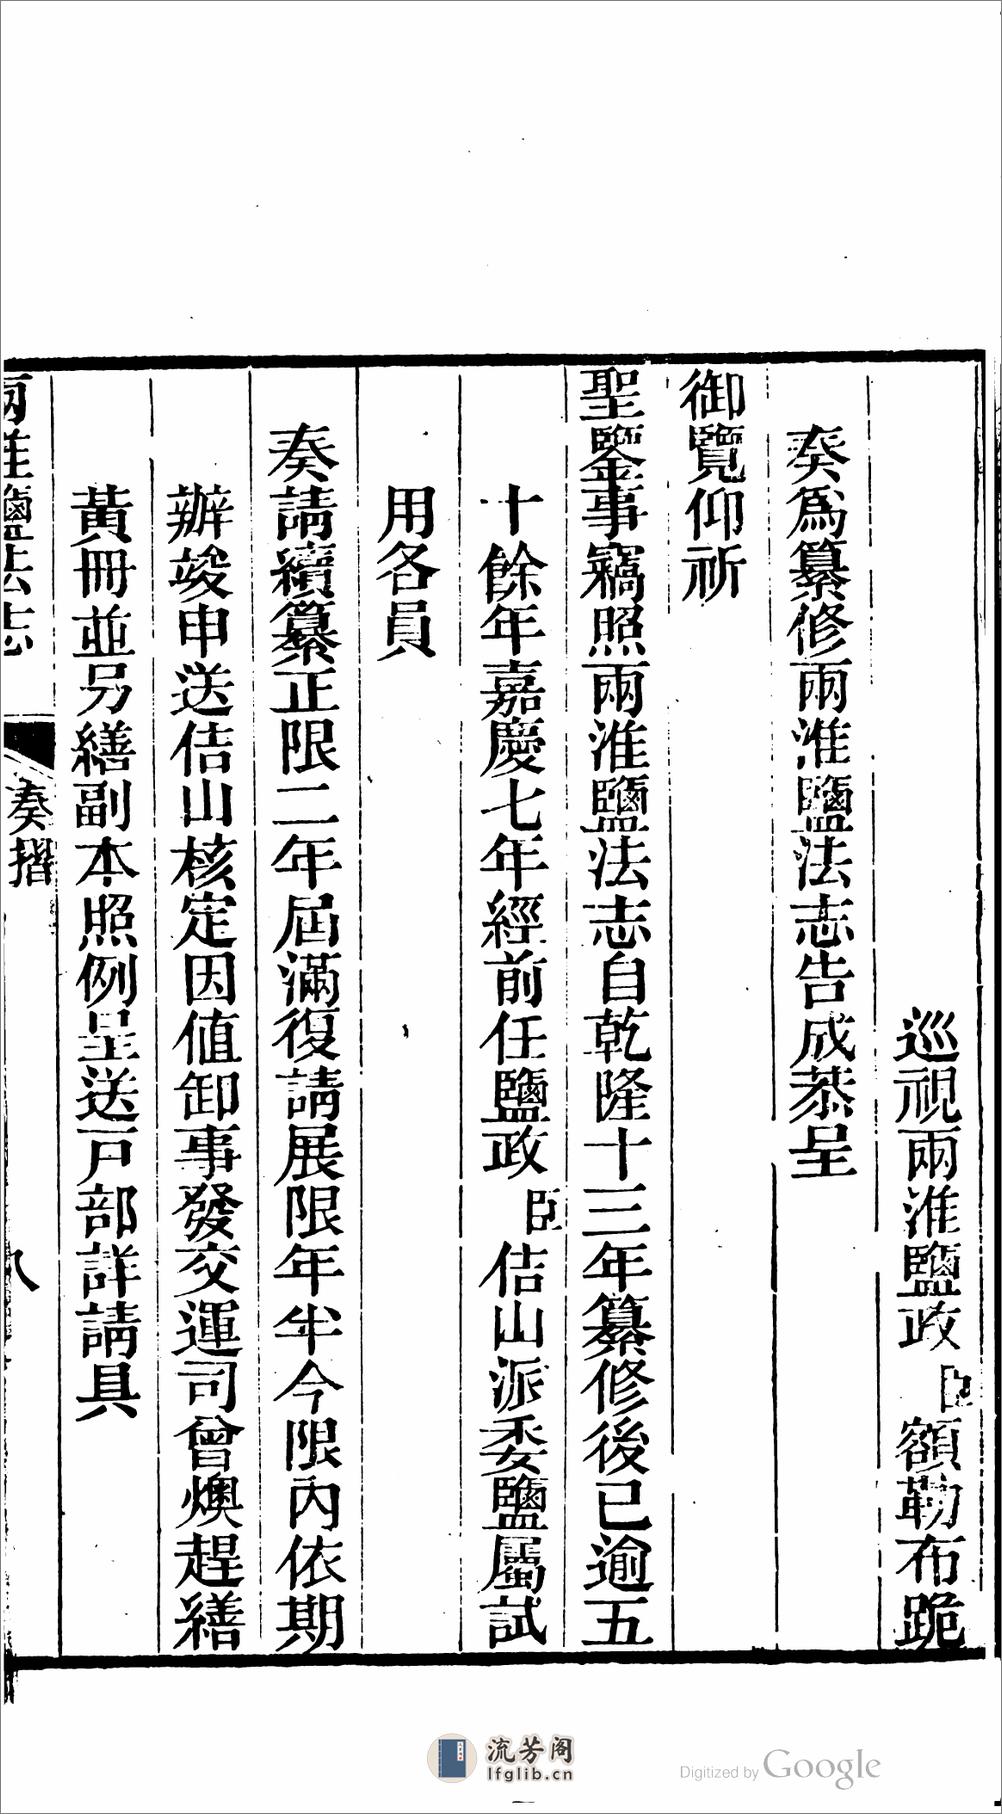 巡視兩淮鹽政臣額勒布跪
奏爲纂修兩淮鹽法志告成恭呈
御覽仰祈
聖鑒事竊照兩淮鹽法志自乾隆十三年纂修後已逾五
十餘年嘉慶七年經前任鹽政臣佶山派委鹽屬試
用各員
奏請續纂正限二年屆滿復請展限年半今限內依期
辦竣申送佶山核定因值卸事發交運司曾燠趕繕
黃冊並另繕副本照例呈送戶部詳請具
兩淮鹽法志 奏摺 八
流芳阁
lfglib.cn
Digitized by Google